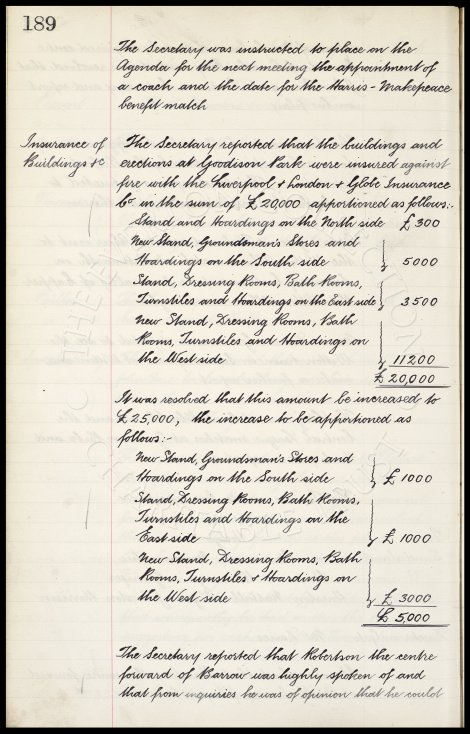 189
The Secretary was instructed to place on the
Agenda for the next meeting the appointment of
a coach and the date for the Harris - Makepeace
benefit match
Insurance of
Buildings &c
The Secretary reported that the buildings and
erections at Goodison Park were insured against
fire with the Liverpool & London & Globe Insurance
Co. in the sum of £20,000 apportioned as follows:-
Stand and Hoardings on the North side £ 300
New Stand, Groundsman's Stores and
Hoardings on the South side } 5000
Stand, Dressing Rooms, Bath Rooms,
Turnstiles and Hoardings on the East side } 3500
New Stand, Dressing Rooms, Bath
Rooms, Turnstiles and Hoardings on
the West side } 11200
£ 20,000
It was resolved that this amount be increased to
£25,000, the increase to be apportioned as
follows:-
New Stand, Groundsman's Stores and
Hoardings on the South side } £ 1000
Stand, Dressing Rooms, Bath Rooms,
Turnstiles and Hoardings on the
East side } £ 1000
New Stand, Dressing Rooms, Bath
Rooms, Turnstiles & Hoardings on
the West side } £ 3000
£ 5,000
The Secretary reported that Robertson the centre
forward of Barrow was highly spoken of and
that from inquiries he was of opinion that he could